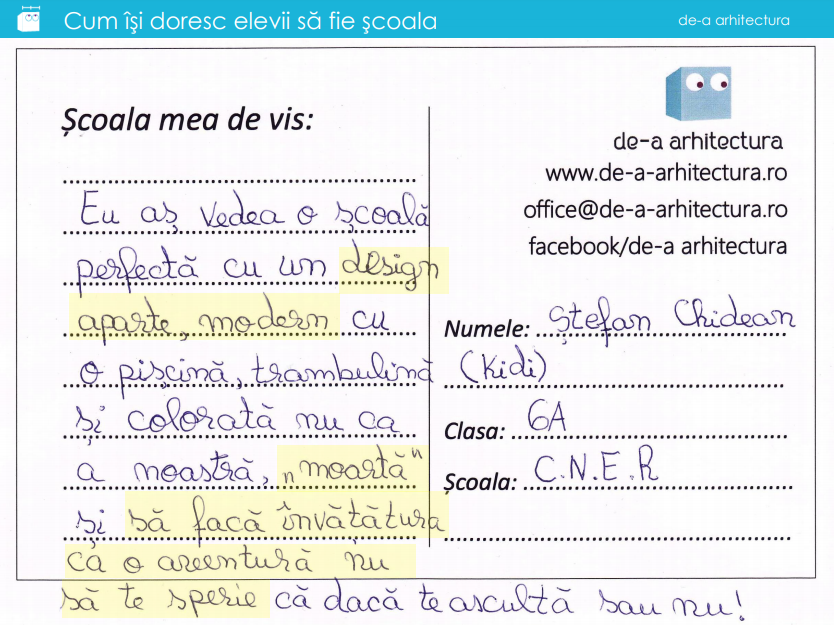 Cum îşi doresc elevii să fie şcoala
de-a arhitectura
Școala mea de vis:
Eu aș vedea o școală
perfectă cu un design
aparte, modern cu
o piscină, trambulină
și colorată nu ca
a noastră, „moartă”
și să facă învătătura
ca o areentură nu
să te sperie că dacă te ascultă sau nu!
de-a arhitectura
www.de-a-arhitectura.ro
office@de-a-arhitectura.ro
facebook/de-a arhitectura
Numele: Ștefan Chidean
(Kidi)
Clasa: 6A
Școala: C.N.E.R